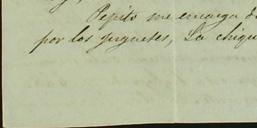 Pepito me encarga d
por los juguetes, La chiqu